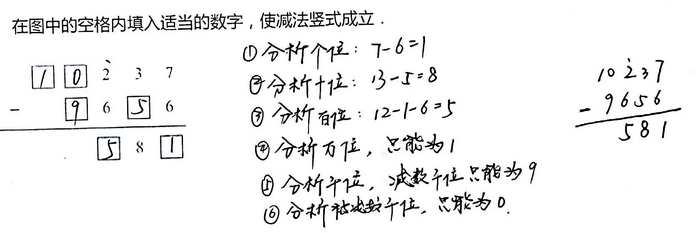 在图中的空格内填入适当的数字，使减法竖式成立．
1 0 2 3 7
- 9 6 5 6
5 8 1
① 分析个位：7-6=1
② 分析十位：13-5=8
③ 分析百位：12-1-6=5
④ 分析万位，只能为1
⑤ 分析千位，减数千位只能为9
⑥ 分析被减数千位，只能为0.
10237
- 9656
581